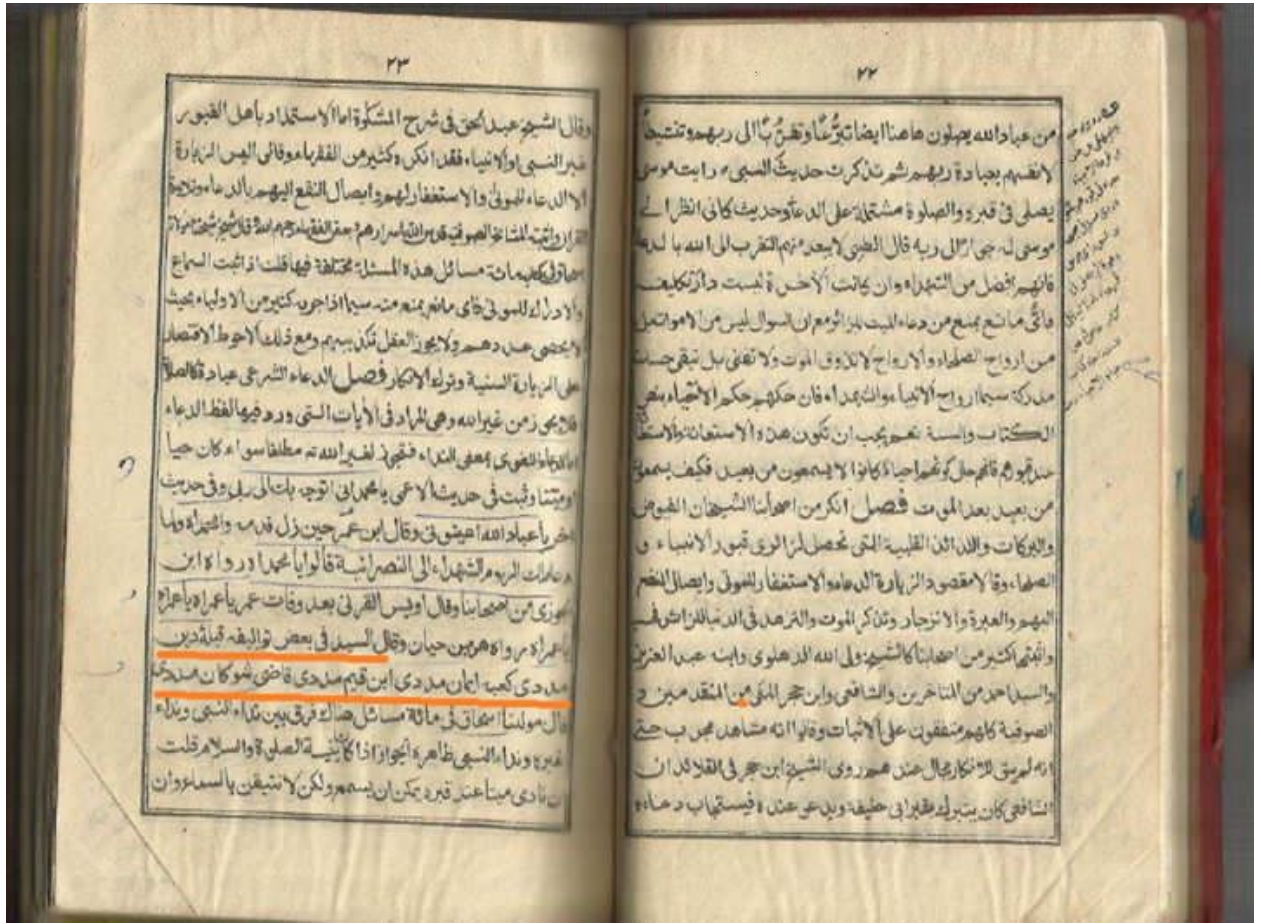 ٢٢
من عباد الله يصلون هاهنا ايضا تبرعا وتقربا الى ربهم وتنتيجا
لانفسهم بعبادة ربهم ثم تذكرت حديث النبي رايت موسى
يصلى فى قبره والصلوة مشتملة على الدعاء وحديث كانى انظر الى
موسى له جوار الى ربه قال القضى لا يبعد منهم التقرب الى الله بالدعا
فانهم افضل من الشهداء وان كانت الآخرة ليست دار تكليف
فاى مانع يمنع من دعاء الميت للزائر مع ان السوال ليس من الاموات بل
من ارواح الصلحاء والارواح لا تذوق الموت ولا تفنى بل تبقى حساسة
مدركة سيما ارواح الانبياء والشهداء فان حكمهم حكم الاحياء بنص
الكتاب والسنة نعم يجب ان تكون هذه الاستعانة والاستغاثة
عند قبورهم فانهم حال كونهم احياء كانوا لا يسمعون من بعيد فكيف يسمعون
من بعيد بعد الموت فصل انكر من اصحابنا الشيخان الفيوض
والبركات واللذائذ القلبية التى تحصل لزائرى قبور الانبياء و
الصلحاء وقالا مقصود الزيارة الدعاء والاستغفار للموتى وايصال النفع
اليهم والعبرة والانزجار وتذكر الموت والتزهد فى الدنيا للزائر
واثبتها كثير من اصحابنا كالشيخ ولى الله الدهلوى وابنه عبد العزيز
والسيد احمد من المتاخرين والشافعى وابن حجر المكى من المتقدمين و
الصوفية كلهم متفقون على الاثبات وقالوا انه مشاهد مجرب حتى
انه لم يبق للانكار مجال عندهم روى الشيخ ابن حجر فى القلائد ان
الشافعى كان يتبرك بقبر ابى حنيفة ويدعو عنده فيستجاب دعاءه
٢٣
وقال الشيخ عبد الحق فى شرح المشكوة اما الاستمداد باهل القبور
غير النبى او الانبياء فقد انكره كثير من الفقهاء وقالى اليس الزيارة
الا الدعاء للموتى والاستغفار لهم وايصال النفع اليهم بالدعاء وتلاوة
القران واثبته المشائخ الصوفية قدس الله اسرارهم وبعض الفقهاء رحمهم الله قال شيخ شيخنا مولانا
اسحاق فى كتابه مائة مسائل هذه المسئلة مختلفة فيها قلت اذا ثبت السماع
والادراك للموتى فاى مانع يمنع منه سيما اذا جربه كثير من الاولياء بحيث
لا يحصى عددهم ولا يجوز العقل تكذيبهم ومع ذلك الاحوط الاقتصار
على الزيارة السنية وترك الانكار فصل الدعاء الشرعى عبادة كالصلاة
فلا يجوز من غير الله وهى المراد فى الآيات التى ورد فيها لفظ الدعاء
اما الدعاء اللغوى بمعنى النداء فتجوز لغير الله مطلقا سواء كان حيا
او ميتا وثبت فى حديث الاعمى يا محمد انى اتوجه بك الى ربى وفى حديث
آخر يا عباد الله اعينونى وقال ابن عمر حين زل قدمه وامحمداه ولما
دعا ملك الروم الشهداء الى النصرانية قالوا يا محمداه رواه ابن
الجوزى من اصحابنا وقال اويس القرنى بعد وفات عمر يا عمراه يا عمراه
يا عمراه رواه هرم بن حيان وقال السيد فى بعض تواليفه قبلۂ دين
مددى كعبۂ ايمان مددى ابن قيم مددى قاضى شوكان مددى
قال مولانا اسحاق فى مائة مسائل هناك فرق بين نداء النبى ونداء
غيره ونداء النبى ظاهره الجواز اذا كان بنية الصلوة والسلام قلت
ان نادى ميتا عند قبره يمكن ان يسمع ولكن لا نتيقن بالسماع وان